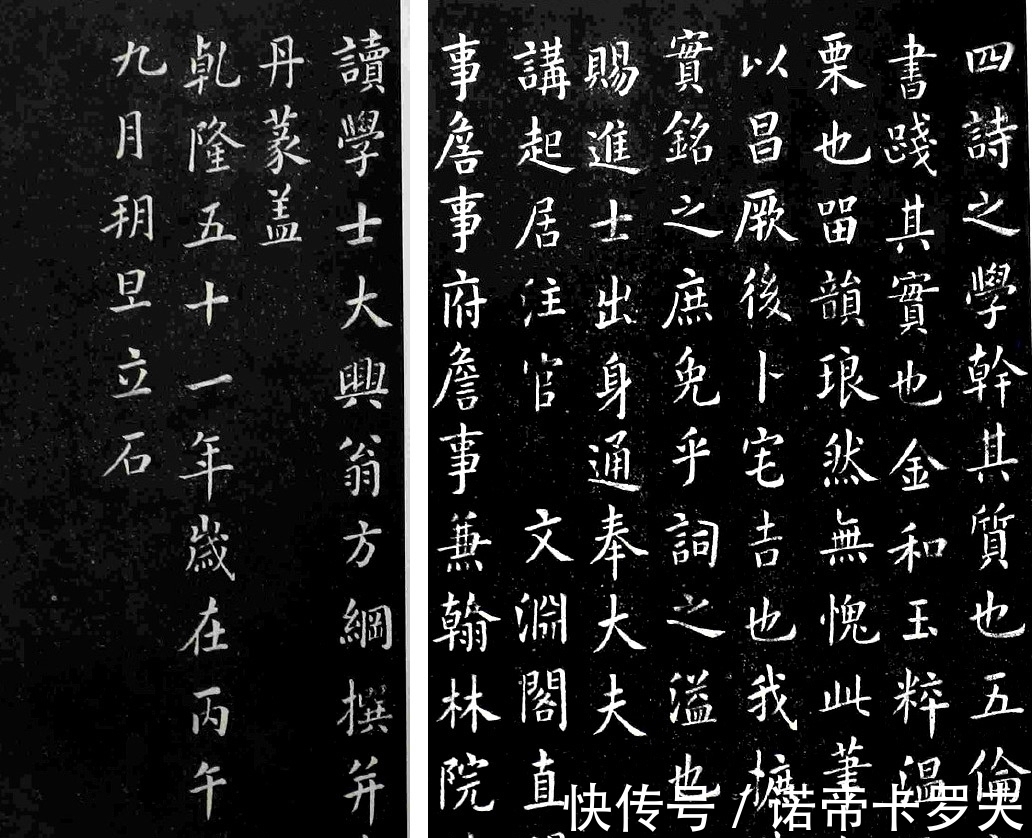 四詩之學幹其質也五倫
書踐其實也金和玉粹温
栗也㽞韻琅然無愧此筆
以昌厥後卜宅吉也我摭
實銘之庶免乎詞之溢也
賜進士出身通奉大夫
講起居注官 文淵閣直
事詹事府詹事兼翰林院
讀學士大興翁方綱撰并
丹篆盖
乹隆五十一年歲在丙午
九月玥旦立石
快传号 / 诺帝卡罗夫